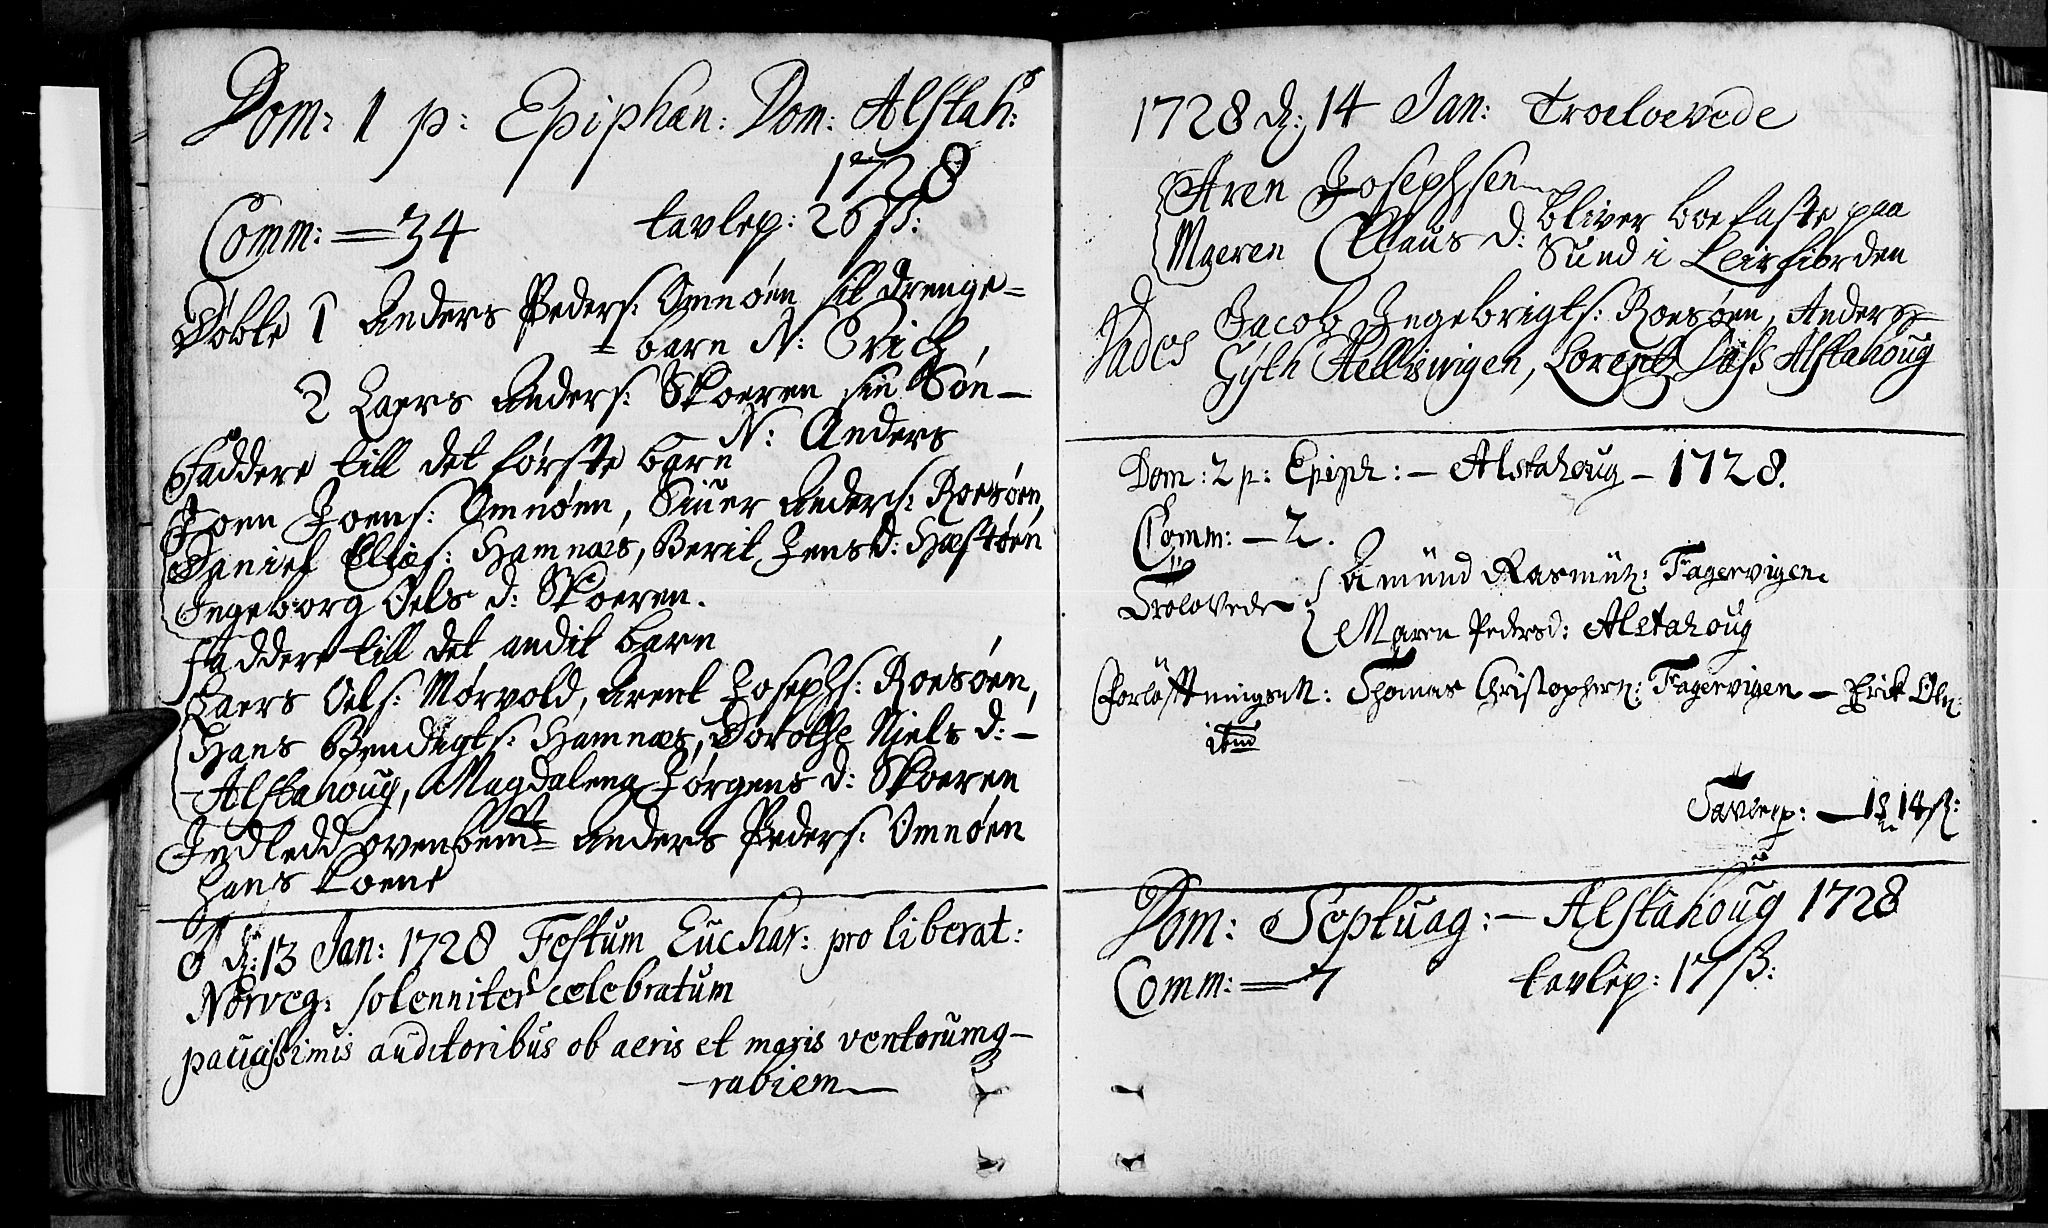 Dom: 1 p: Epiphan: Dom: Alstah:
1728
Comm: = 34 tavlep: 26 ß:
Døbte 1 Anders Peders: Omnøen sit drenge=
= barn N: Erich,
2 Laers Anders: Skoeren sin Søn -
N: Anders
Faddere till det første barn
Joen Joens: Omnøen, Siuer Anders: Roesøen,
Daniel Elias: Hamnæs, Berit Jensd: Hæstøen
Ingeborg Oels d: Skoeren.
Faddere till det andit barn
Laers Oels: Mørvold, Arent Josephs: Roesøen,
Hans Bendigts: Hamnæs, Dorothe Niels d: -
- Alstahoug, Magdalena Jørgens d: Skoeren
Indledd ovenbemte Anders Peders: Omnøen
hans koene
d: 13 Jan: 1728 Festum Euchar: pro liberat:
Norveg: solenniter celebratum
paucissimis auditoribus ob aeris et maris ventorumq -
- rabiem -
1728 d: 14 Jan: Troeloevede
Aren Josephsen bliver boefaste paa
Maren Claus d: Sund i Leirfiorden
Fades Jacob Ingebrigts: Roesøen, Anders
Gyth Hellsvigen, Lorentz Dass Alstahoug
Dom: 2 p: Epiph: - Alstahoug - 1728.
Comm: - 2.
Trolovede Amund Rasmuz: Fagervigen
Maren Pedersd: Alstahoug
Forløftningsm: Thomas Christophern: Fagervigen - Erik Oln:
ibid
Tavlep: - 1 14 ß:
Dom: Septuag: - Alstahoug 1728
Comm: = 7 tavlep: 17 ß: